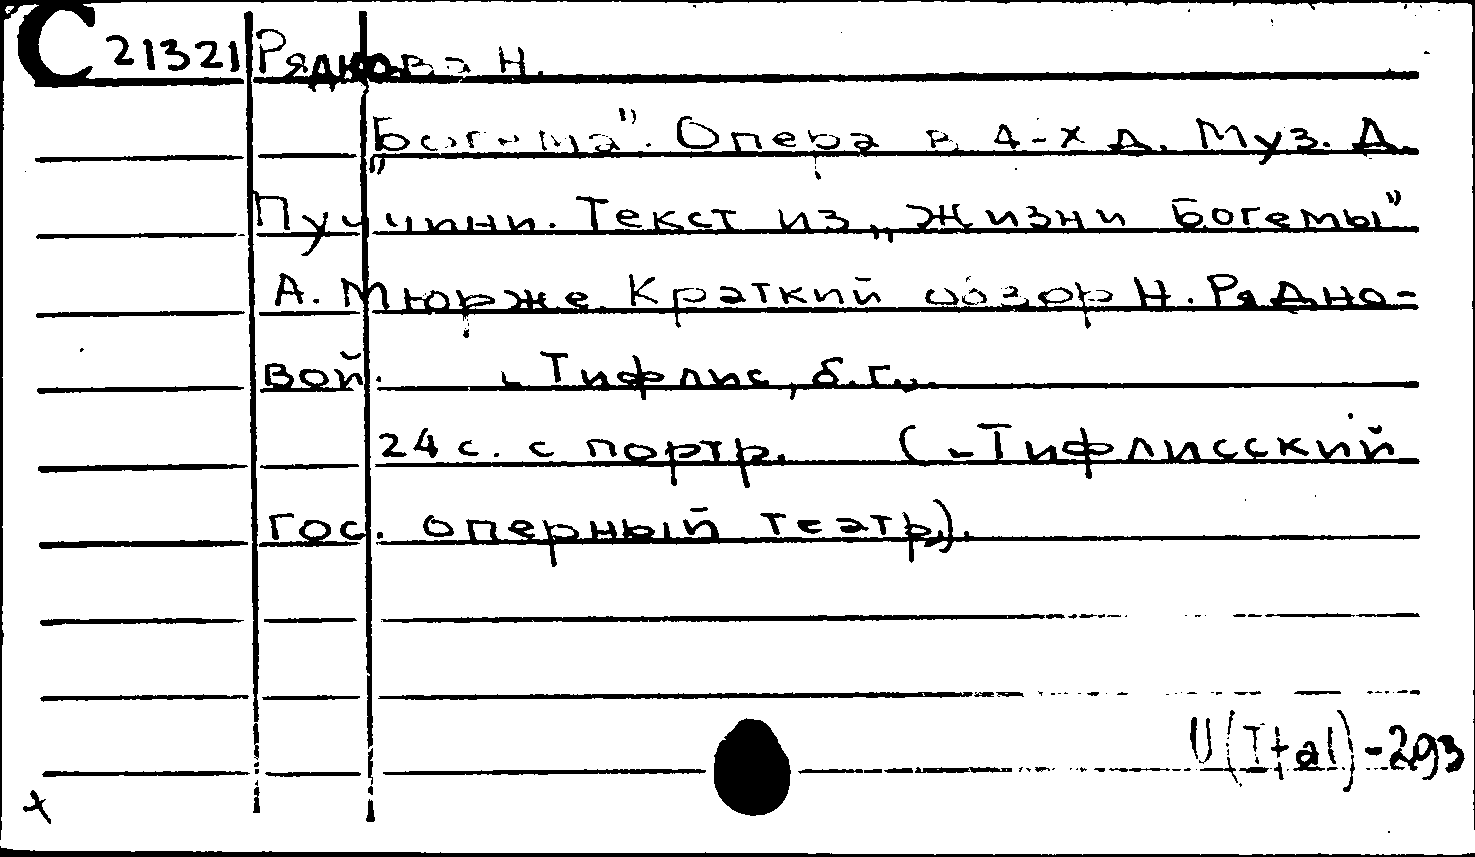 C 21321 Ряднова Н.
„Богема". Опера в 4-х д. Муз. Д.
Пуччини. Текст из „Жизни Богемы"
А. Мюрже. Краткий обзор Н. Рядно-
вой. Тифлис, б.г.
24 с. с портр. (Тифлисский
гос. оперный театр).
U(Ital)-293